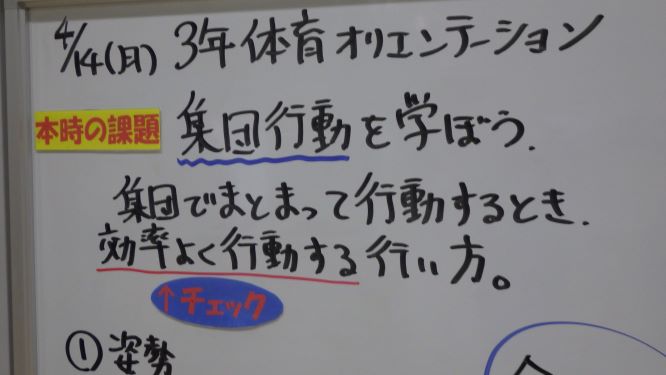 4/14(月) 3年体育オリエンテーション
本時の課題 集団行動を学ぼう.
集団でまとまって行動するとき.
効率よく行動する行い方。
↑チェック
①姿勢